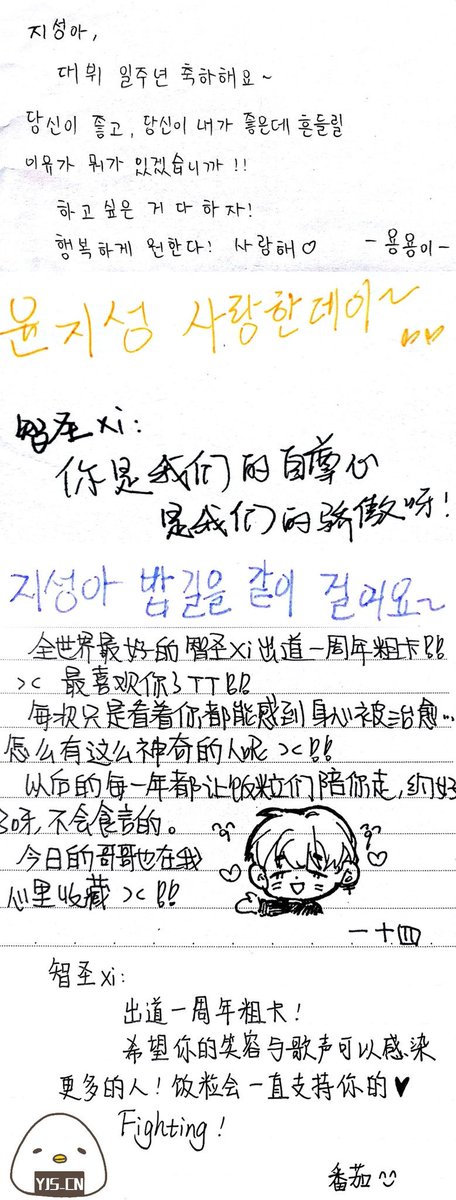 지성아,
대뷔 일주년 축하해요~
당신이 좋고, 당신이 내가 좋은데 흔들릴
이유가 뭐가 있겠습니까!!
하고 싶은 거 다 하자!
행복하게 원한다! 사랑해♡ -용용이-
윤지성 사랑한데이~
智圣xi:
你是我们的自尊心
是我们的骄傲呀!
지성아 밥길을 같이 걸어요~
全世界最好的智圣xi出道一周年粗卡!!
>< 最喜欢你了TT!!
每次只是看着你都能感到身心被治愈…
怎么有这么神奇的人呢><!!
以后的每一年都让饭粒们陪你走,约好
了呀,不会食言的。
今日的哥哥也在我
心里收藏><!!
一十四
智圣xi:
出道一周年粗卡!
希望你的笑容与歌声可以感染
更多的人!饭粒会一直支持你的♥
Fighting!
番茄
YJS_CN